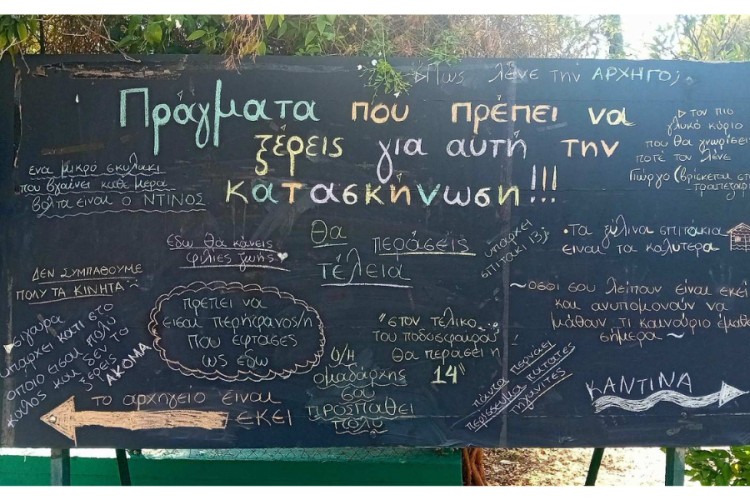 Πως λένε την ΑΡΧΗΓΟ;
Πράγματα που πρέπει να
ξέρεις για αυτή την
κατασκήνωση!!!
τον πιο
γλυκό κύριο
που θα γνωρίσεις
ποτέ τον λένε
Γιώργο (βρίσκεται στ
τραπεζαρ
ενα μικρό σκυλάκι
που βγαίνει κάθε μέρα
βόλτα είναι ο ΝΤΙΝΟΣ
εδω θα κάνεις
φιλίες ζωής
Θα περάσεις
τέλεια
υπάρχει
σπιτάκι 13;
• Τα ξύλινα σπιτάκια
είναι τα καλύτερα
ΔΕΝ ΣΥΜΠΑΘΟΥΜΕ
ΠΟΛΥ ΤΑ ΚΙΝΗΤΑ
πρέπει να
εισαι περήφανος/η
που έφτασες
ως εδω
~ οσοι σου λείπουν είναι εκεί
και ανυπομονούν να
μάθουν τι καινούριο έμαθ
σήμερα ~
"στον τελικο
του ποδοσφαιρου
θα περάσει η
14"
σίγουρα
υπάρχει κάτι στο
οποίο εισαι πολύ
καλος και δεν το
ξέρεις
ΑΚΟΜΑ
Ο/Η
ομαδάρχης
σου
ΠΡΟΣΠΑΘΕΙ
πολύ
πάντα περνάει
περισσότερες πατάτες
τηγανιτές
ΚΑΝΤΙΝΑ
το αρχηγείο είναι
ΕΚΕΙ